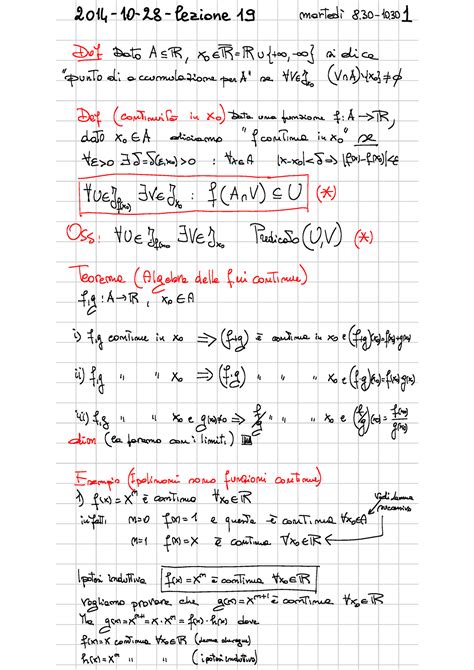 2014-10-28-lezione 19 martedì 8.30-1030 1
Def Dato A⊆ℝ, x₀∈ℝ̅=ℝ∪{+∞,-∞} si dice
"punto di accumulazione per A" se ∀V∈ℐx₀ (V∩A)\{x₀}≠∅
Def (continuità in x₀) Data una funzione f:A→ℝ,
dato x₀∈A diciamo "f continua in x₀" se
∀ε>0 ∃δ=δ(ε,x₀)>0 : ∀x∈A |x-x₀|<δ ⇒ |f(x)-f(x₀)|<ε
∀U∈ℐf(x₀) ∃V∈ℐx₀ : f(A∩V)⊆U (*)
Oss: ∀U∈ℐf(x₀) ∃V∈ℐx₀ Predicato(U,V) (*)
Teorema (Algebra delle f.ni continue)
f,g: A→ℝ, x₀∈A
i) f,g continue in x₀ ⇒ (f+g) è continua in x₀ e (f+g)(x₀)=f(x₀)+g(x₀)
ii) f,g " " x₀ ⇒ (f·g) " " " x₀ e (f·g)(x₀)=f(x₀)g(x₀)
iii) f,g " " x₀ e g(x₀)≠0 ⇒ f/g " " x₀ e (f/g)(x₀)=f(x₀)/g(x₀)
dim (la faremo con i limiti)
Esempio (I polinomi sono funzioni continue)
1) f(x)=xⁿ è continua ∀x₀∈ℝ
infatti n=0 f(x)=1 e questa è continua ∀x₀∈ℝ
n=1 f(x)=x è continua ∀x₀∈ℝ
vedi lemma successivo
Ipotesi induttiva f(x)=xⁿ è continua ∀x₀∈ℝ
vogliamo provare che g(x)=xⁿ⁺¹ è continua ∀x₀∈ℝ
Ma g(x)=xⁿ⁺¹=x·xⁿ=f(x)·h(x) dove
f(x)=x continua ∀x₀∈ℝ
h(x)=xⁿ " " (ipotesi induttiva)